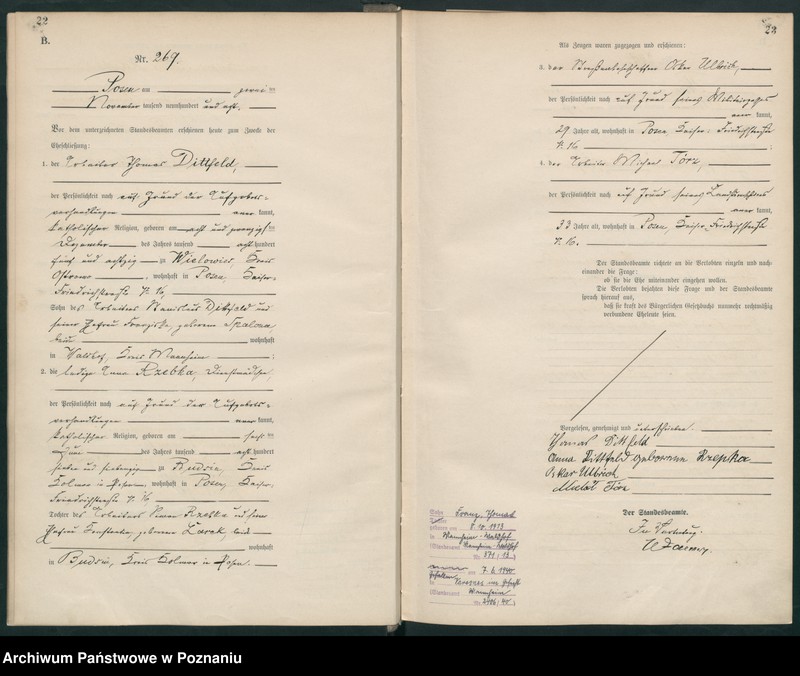 22
B.
Nr. 269.
Posen am zwei ten
November tausend neunhundert und acht.
Vor dem unterzeichneten Standesbeamten erschienen heute zum Zwecke der
Eheschließung:
1. der Arbeiter Thomas Dittfeld,
der Persönlichkeit nach auf Grund der Aufgebots-
verhandlungen kannt,
katholischer Religion, geboren am acht und zwanzigsten
Dezember des Jahres tausend acht hundert
fünf und achtzig zu Wielowies, Kreis
Ostrowo, wohnhaft in Posen, Kaiser-
Friedrichstraße
Sohn des Arbeiters Stanislaus Dittfeld und
seiner Ehefrau Franziska, geborenen
wohnhaft
in Waldhof, Kreis Mannheim;
2. die ledige Anna Rzebka, Dienstmädchen,
der Persönlichkeit nach auf Grund der Aufgebots-
verhandlungen kannt,
katholischer Religion, geboren am sechs ten
des Jahres tausend acht hundert
sieben und siebenzig zu Budsin, Kreis
Kolmar in Posen, wohnhaft in Posen, Kaiser-
Friedrichstraße
Tochter des Arbeiters Rzebka und seiner
Ehefrau Konstantia, geborenen beide
wohnhaft
in Budsin, Kreis Kolmar in Posen.
23
Als Zeugen waren zugezogen und erschienen:
3. der Oskar Ulbrich,
der Persönlichkeit nach auf Grund seines Militärpasses
kannt,
29 Jahre alt, wohnhaft in Posen, Kaiser-Friedrichstraße
4. der Arbeiter Michael Törz,
der Persönlichkeit nach auf Grund seines
kannt,
33 Jahre alt, wohnhaft in Posen, Kaiser-Friedrichstraße
Der Standesbeamte richtete an die Verlobten einzeln und nach-
einander die Frage:
ob sie die Ehe miteinander eingehen wollen.
Die Verlobten bejahten diese Frage und der Standesbeamte
sprach hierauf aus,
daß sie kraft des Bürgerlichen Gesetzbuchs nunmehr rechtmäßig
verbundene Eheleute seien.
Vorgelesen, genehmigt und unterschrieben.
Thomas Dittfeld
Anna Dittfeld geborenne Krzepka
Oskar Ulbrich
Michal Törz
Der Standesbeamte.
In Vertretung.
Sohn Franz Thomas
geboren am 1913
in Mannheim-Waldhof
Nr. 371/13
7. 6. 1940
Mannheim
Archiwum Państwowe w Poznaniu